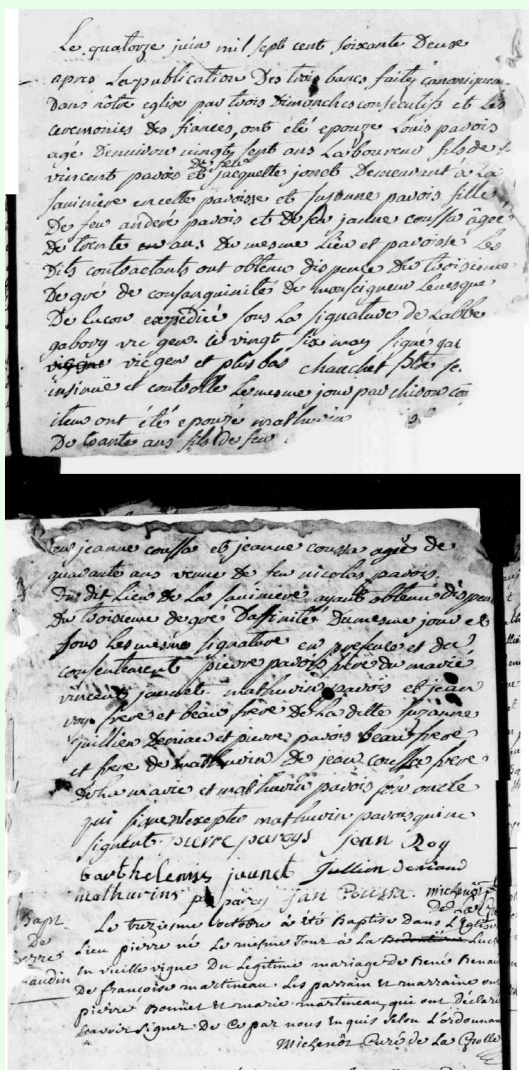 Le quatorze juin mil sept cent soixante Deuse
apres La publication Des trois bancs faites canoniquem
Dans nôtre eglise par trois Dimanches consecutifs et Les
ceremonies des fiances, ont été epouze Louis pavois
agé Denniron vingt sept ans Laboureur fils de
vincent pavois et de feu jacquette jonet Demeurant a La
saviniere en cette paroisse et suzanne pavois fille
De feu anderé pavois et De feu janne coussa agée
De trente ans Du mesme Lieu et paroisse Les
Dits contractants ont obtenu dispence Du troisieme
Degré de consanguinité De monseigneur Levesque
De Lucon expedié sous La signature de Labbe
gabory vic gen Le vingt six may signe gab
vic gen et plus bas chauchet ptre se.
insinué et controlle Le mesme jour par
iteu ont étés epouzé mathurin
De trante ans fils de feu
feu jeanne coussa et jeanne coussa agée de
quarante ans veuve De feu nicolas pavois
Du dit Lieu De La saviniere ayant obtenu dispen
Du troisieme degré Daffinité Du mesme jour et
sous Les mesme signature en presence et du
consentement pierre pavois père Du marié
vincent jaunet mathurin pavois et jean
roy frere et beau frère De La ditte suzanne
jullien Deriau et pierre pavois beau frere
et frere De mathurin De jean coussa frere
De La mariée et mathurin pavois son oncle
qui signent excepté mathurin pavois qui ne
signent. pierre paroys jean Roy
barthelemy jaunet Jullien deriaud
mathurins paroy jan Coussa. michenot p
de La
Bapt.
De
pierre
audin
Le treziesme octobre à été Baptise Dans L'Eglise
Lieu pierre né Le mesme Jour à La
en vieille vigne Du Legitime mariage De René Renau
De francoise martineau. Les parrain et marraine on
pierre Bonnet et marie martineau, qui ont Déclaré
scavoir signer De Ce par nous Enquis selon L'ordonnan
Michenot Curé de La Grolle